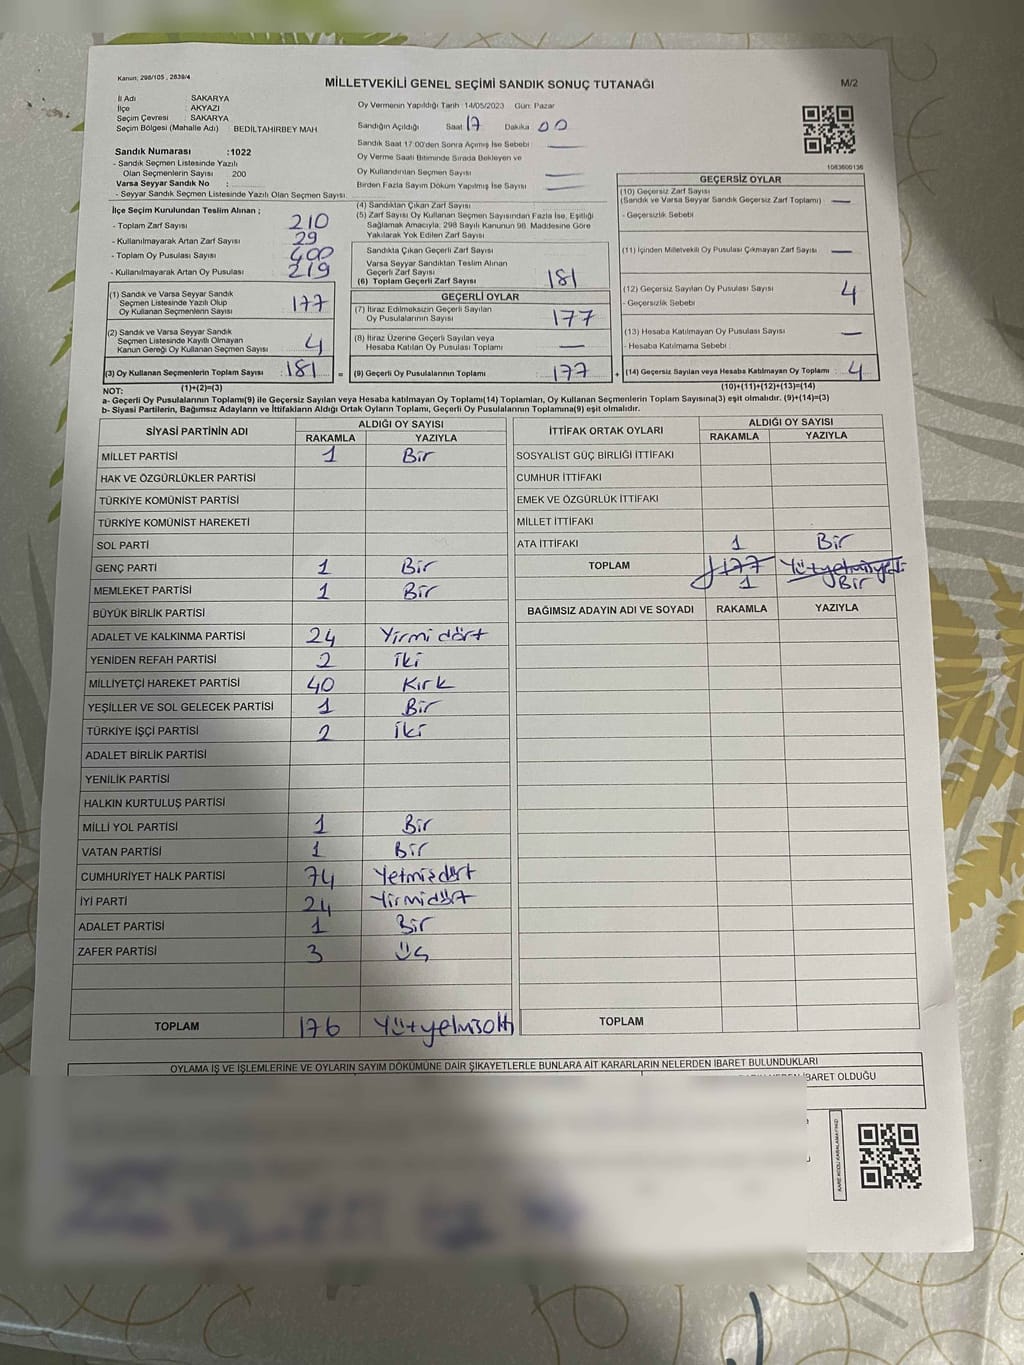 Kanun; 298/105 , 2839/4
MİLLETVEKİLİ GENEL SEÇİMİ SANDIK SONUÇ TUTANAĞI
M/2
İl Adı : SAKARYA
İlçe : AKYAZI
Seçim Çevresi : SAKARYA
Seçim Bölgesi (Mahalle Adı) : BEDİLTAHİRBEY MAH
Sandık Numarası :1022
- Sandık Seçmen Listesinde Yazılı
Olan Seçmenlerin Sayısı : 200
Varsa Seyyar Sandık No :
- Seyyar Sandık Seçmen Listesinde Yazılı Olan Seçmen Sayısı:
Oy Vermenin Yapıldığı Tarih :14/05/2023 Gün: Pazar
Sandığın Açıldığı Saat 17 Dakika 00
Sandık Saat 17.00'den Sonra Açılmış İse Sebebi :
Oy Verme Saati Bitiminde Sırada Bekleyen ve
Oy Kullandırılan Seçmen Sayısı :
Birden Fazla Sayım Döküm Yapılmış İse Sayısı :
1083600136
İlçe Seçim Kurulundan Teslim Alınan ;
- Toplam Zarf Sayısı : 210
- Kullanılmayarak Artan Zarf Sayısı : 29
- Toplam Oy Pusulası Sayısı : 400
- Kullanılmayarak Artan Oy Pusulası : 219
(1) Sandık ve Varsa Seyyar Sandık
Seçmen Listesinde Yazılı Olup
Oy Kullanan Seçmenlerin Sayısı : 177
(2) Sandık ve Varsa Seyyar Sandık
Seçmen Listesinde Kayıtlı Olmayan
Kanun Gereği Oy Kullanan Seçmen Sayısı : 4
(3) Oy Kullanan Seçmenlerin Toplam Sayısı : 181
(1)+(2)=(3)
(4) Sandıktan Çıkan Zarf Sayısı :
(5) Zarf Sayısı Oy Kullanan Seçmen Sayısından Fazla İse, Eşitliği
Sağlamak Amacıyla, 298 Sayılı Kanunun 98. Maddesine Göre
Yakılarak Yok Edilen Zarf Sayısı :
Sandıkta Çıkan Geçerli Zarf Sayısı :
Varsa Seyyar Sandıktan Teslim Alınan
Geçerli Zarf Sayısı :
(6) Toplam Geçerli Zarf Sayısı : 181
GEÇERLİ OYLAR
(7) İtiraz Edilmeksizin Geçerli Sayılan
Oy Pusulalarının Sayısı : 177
(8) İtiraz Üzerine Geçerli Sayılan veya
Hesaba Katılan Oy Pusulası Toplamı : —
= (9) Geçerli Oy Pusulalarının Toplamı : 177
GEÇERSİZ OYLAR
(10) Geçersiz Zarf Sayısı
(Sandık ve Varsa Seyyar Sandık Geçersiz Zarf Toplamı) : —
- Geçersizlik Sebebi :
(11) İçinden Milletvekili Oy Pusulası Çıkmayan Zarf Sayısı : —
(12) Geçersiz Sayılan Oy Pusulası Sayısı : 4
- Geçersizlik Sebebi :
(13) Hesaba Katılmayan Oy Pusulası Sayısı : —
- Hesaba Katılmama Sebebi :
+ (14) Geçersiz Sayılan veya Hesaba Katılmayan Oy Toplamı : 4
(10)+(11)+(12)+(13)=(14)
NOT:
a- Geçerli Oy Pusulalarının Toplamı(9) ile Geçersiz Sayılan veya Hesaba katılmayan Oy Toplamı(14) Toplamları, Oy Kullanan Seçmenlerin Toplam Sayısına(3) eşit olmalıdır. (9)+(14)=(3)
b- Siyasi Partilerin, Bağımsız Adayların ve İttifakların Aldığı Ortak Oyların Toplamı, Geçerli Oy Pusulalarının Toplamına(9) eşit olmalıdır.
SİYASİ PARTİNİN ADI ALDIĞI OY SAYISI
RAKAMLA YAZIYLA
MİLLET PARTİSİ 1 Bir
HAK VE ÖZGÜRLÜKLER PARTİSİ
TÜRKİYE KOMÜNİST PARTİSİ
TÜRKİYE KOMÜNİST HAREKETİ
SOL PARTİ
GENÇ PARTİ 1 Bir
MEMLEKET PARTİSİ 1 Bir
BÜYÜK BİRLİK PARTİSİ
ADALET VE KALKINMA PARTİSİ 24 Yirmi dört
YENİDEN REFAH PARTİSİ 2 İki
MİLLİYETÇİ HAREKET PARTİSİ 40 Kırk
YEŞİLLER VE SOL GELECEK PARTİSİ 1 Bir
TÜRKİYE İŞÇİ PARTİSİ 2 İki
ADALET BİRLİK PARTİSİ
YENİLİK PARTİSİ
HALKIN KURTULUŞ PARTİSİ
MİLLİ YOL PARTİSİ 1 Bir
VATAN PARTİSİ 1 Bir
CUMHURİYET HALK PARTİSİ 74 Yetmişdört
İYİ PARTİ 24 Yirmidört
ADALET PARTİSİ 1 Bir
ZAFER PARTİSİ 3 Üç
TOPLAM 176 Yüzyetmişaltı
İTTİFAK ORTAK OYLARI ALDIĞI OY SAYISI
RAKAMLA YAZIYLA
SOSYALİST GÜÇ BİRLİĞİ İTTİFAKI
CUMHUR İTTİFAKI
EMEK VE ÖZGÜRLÜK İTTİFAKI
MİLLET İTTİFAKI
ATA İTTİFAKI 1 Bir
TOPLAM 177 Yüzyetmişyedi
1 Bir
BAĞIMSIZ ADAYIN ADI VE SOYADI RAKAMLA YAZIYLA
TOPLAM
OYLAMA İŞ VE İŞLEMLERİNE VE OYLARIN SAYIM DÖKÜMÜNE DAİR ŞİKAYETLERLE BUNLARA AİT KARARLARIN NELERDEN İBARET BULUNDUKLARI
İBARET OLDUĞU